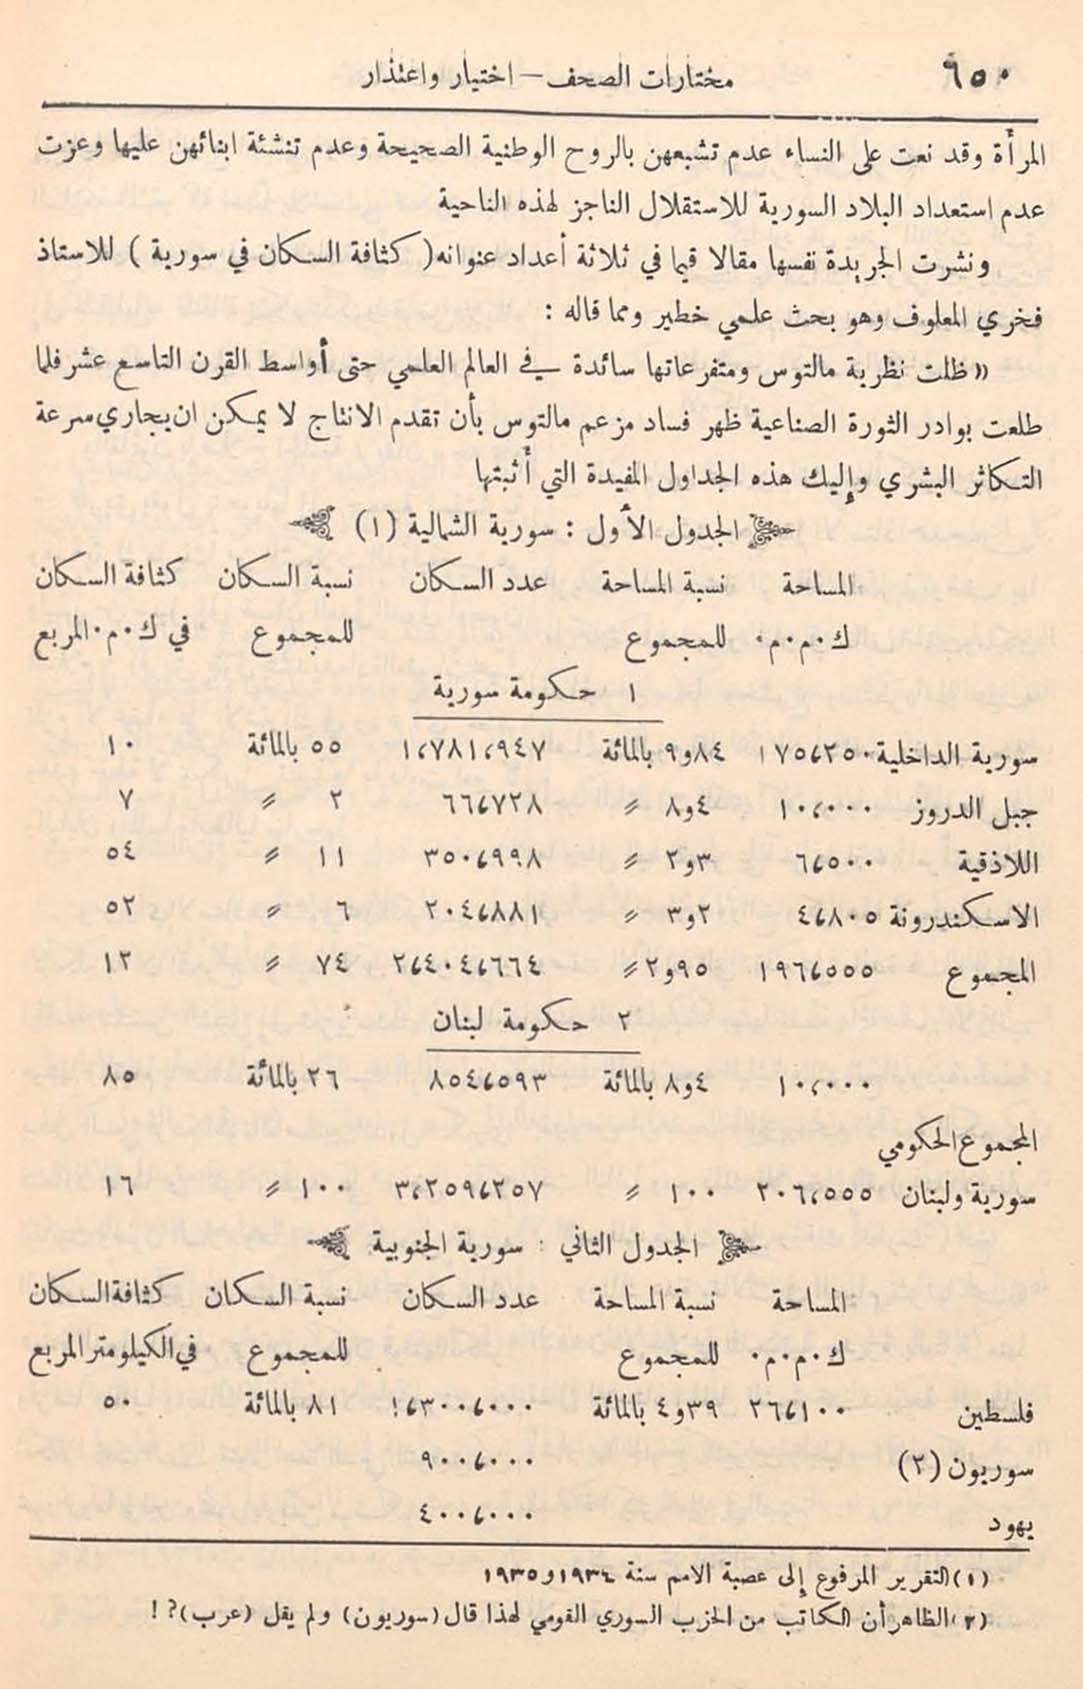 ٦٥٠ مختارات الصحف – اختيار واعتذار
المرأة وقد نعت على النساء عدم تشبعهن بالروح الوطنية الصحيحة وعدم تنشئة ابنائهن عليها وعزت
عدم استعداد البلاد السورية للاستقلال الناجز لهذه الناحية
ونشرت الجريدة نفسها مقالا قيما في ثلاثة أعداد عنوانه (كثافة السكان في سورية) للاستاذ
فخري المعلوف وهو بحث علمي خطير ومما قاله :
«ظلت نظرية مالتوس ومتفرعاتها سائدة في العالم العلمي حتى أواسط القرن التاسع عشر فلما
طلعت بوادر الثورة الصناعية ظهر فساد مزعم مالتوس بأن تقدم الانتاج لا يمكن ان يجاري سرعة
التكاثر البشري وإليك هذه الجداول المفيدة التي أثبتها
الجدول الأول : سورية الشمالية (١)
المساحة نسبة المساحة عدد السكان نسبة السكان كثافة السكان
ك.م.م. للمجموع للمجموع في ك.م.المربع
١ حكومة سورية
سورية الداخلية ١٧٥،٢٥٠ ٨٤و٩ بالمائة ١،٧٨١،٩٤٧ ٥٥ بالمائة ١٠
جبل الدروز ١٠،٠٠٠ ٤و٨ ″ ٦٦،٧٢٨ ٢ ″ ٧
اللاذقية ٦،٥٠٠ ٣و٢ ″ ٣٥٠،٩٩٨ ١١ ″ ٥٤
الاسكندرونة ٤،٨٠٥ ٢و٣ ″ ٢٠٤،٨٨١ ٦ ″ ٥٢
المجموع ١٩٦،٥٥٥ ٩٥و٢ ″ ٢،٤٠٤،٦٦٤ ٧٤ ″ ١٢
٢ حكومة لبنان
١٠،٠٠٠ ٤و٨ بالمائة ٨٥٤،٥٩٣ ٢٦ بالمائة ٨٥
المجموع الحكومي
سورية ولبنان ٢٠٦،٥٥٥ ١٠٠ ″ ٣،٢٥٩،٢٥٧ ١٠٠ ″ ١٦
الجدول الثاني : سورية الجنوبية
المساحة نسبة المساحة عدد السكان نسبة السكان كثافة السكان
ك.م.م. للمجموع للمجموع في الكيلومتر المربع
فلسطين ٢٦،١٠٠ ٣٩و٤ بالمائة ١،٣٠٠،٠٠٠ ٨١ بالمائة ٥٠
سوريون (٢) ٩٠٠،٠٠٠
يهود ٤٠٠،٠٠٠
(١) التقرير المرفوع إلى عصبة الامم سنة ١٩٣٤و١٩٣٥
(٢) الظاهر أن الكاتب من الحزب السوري القومي لهذا قال (سوريون) ولم يقل (عرب)؟ !